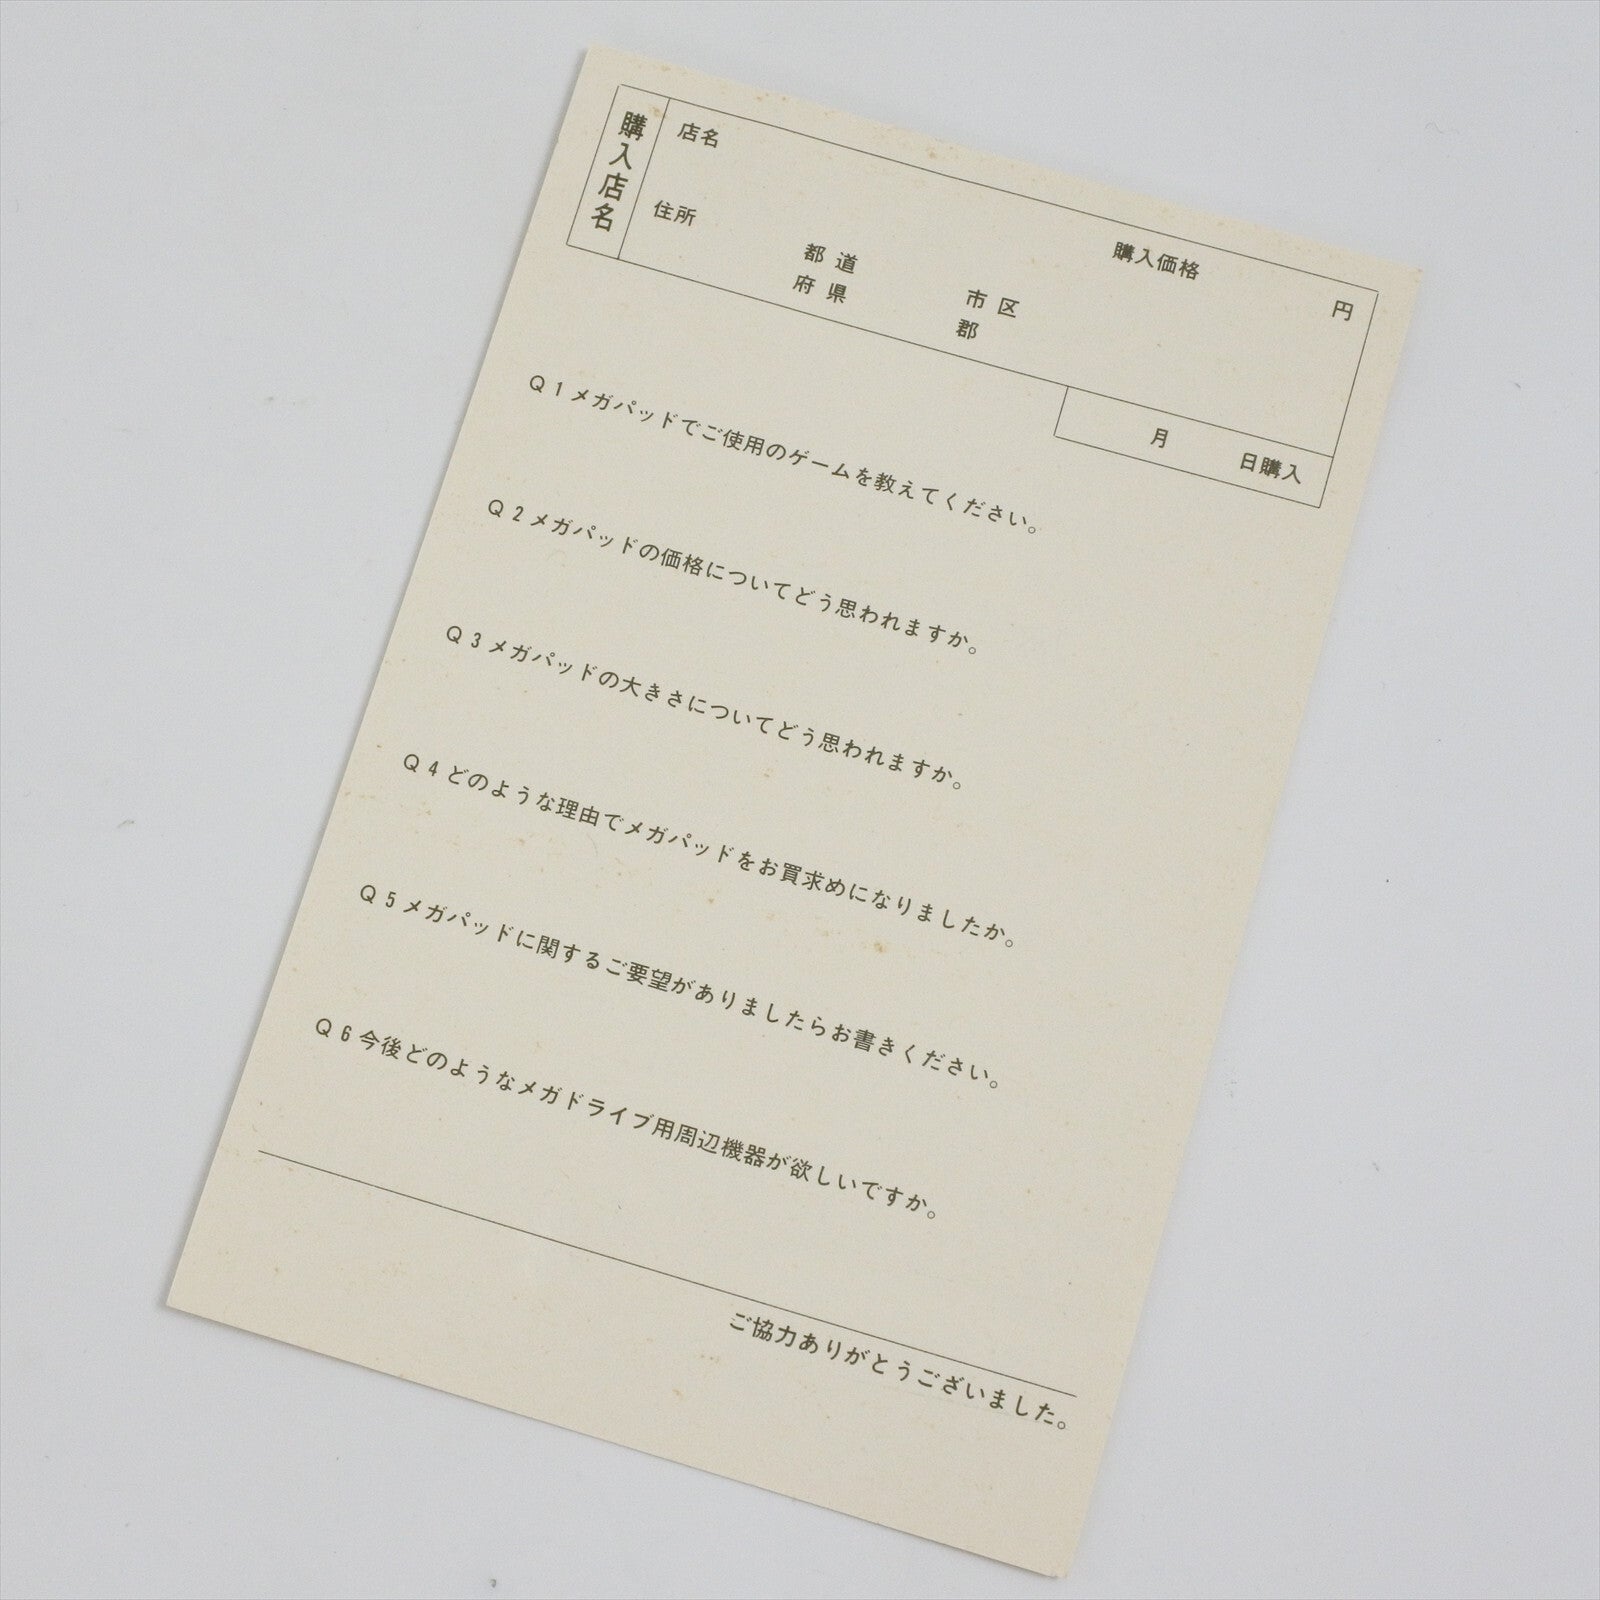 購入店名
店名
購入価格 円
住所
都道 市区
府県 郡
月 日購入
Q1メガパッドでご使用のゲームを教えてください。
Q2メガパッドの価格についてどう思われますか。
Q3メガパッドの大きさについてどう思われますか。
Q4どのような理由でメガパッドをお買求めになりましたか。
Q5メガパッドに関するご要望がありましたらお書きください。
Q6今後どのようなメガドライブ用周辺機器が欲しいですか。
ご協力ありがとうございました。